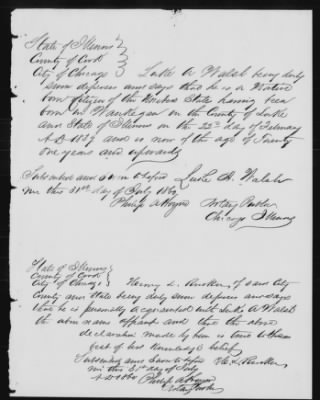 State of Illinois
County of Cook
City of Chicago Luke A Walsh being duly
sworn deposes and says that he is a Native
born Citizen of the United States having been
born in Waukegan in the County of Lake
and State of Illinois on the 22nd day of February
and is now of the age of Twenty
one years and upwards
Subscribed and sworn to before Luke A. Walsh
me this 31st day of July
Philip A Hoyne Notary Public
Chicago Illinois
State of Illinois
County of Cook
City of Chicago Henry L. of said City
County and State being duly sworn deposes and says
that he is personally acquainted with Luke A Walsh
the above named and that the above
declaration made by him is true to the
of his Knowledge & belief
Subscribed and Sworn to before
me this 31st day of July
Philip A Hoyne
Notary Public